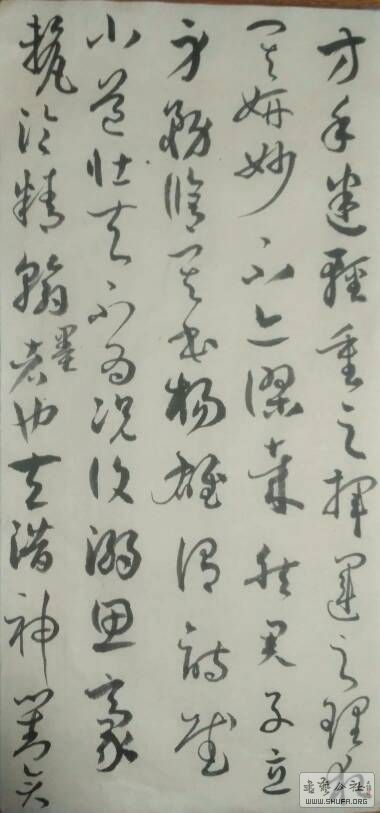 方手迷輕重之揮運之理求
其妍妙不亦謬哉然君子立
身務脩其本楊雄謂詩賦
小道壯夫不為況復溺思豪
氂淪精翰墨者也夫潛神對弈
書藝公社
WWW.SHUFA.ORG